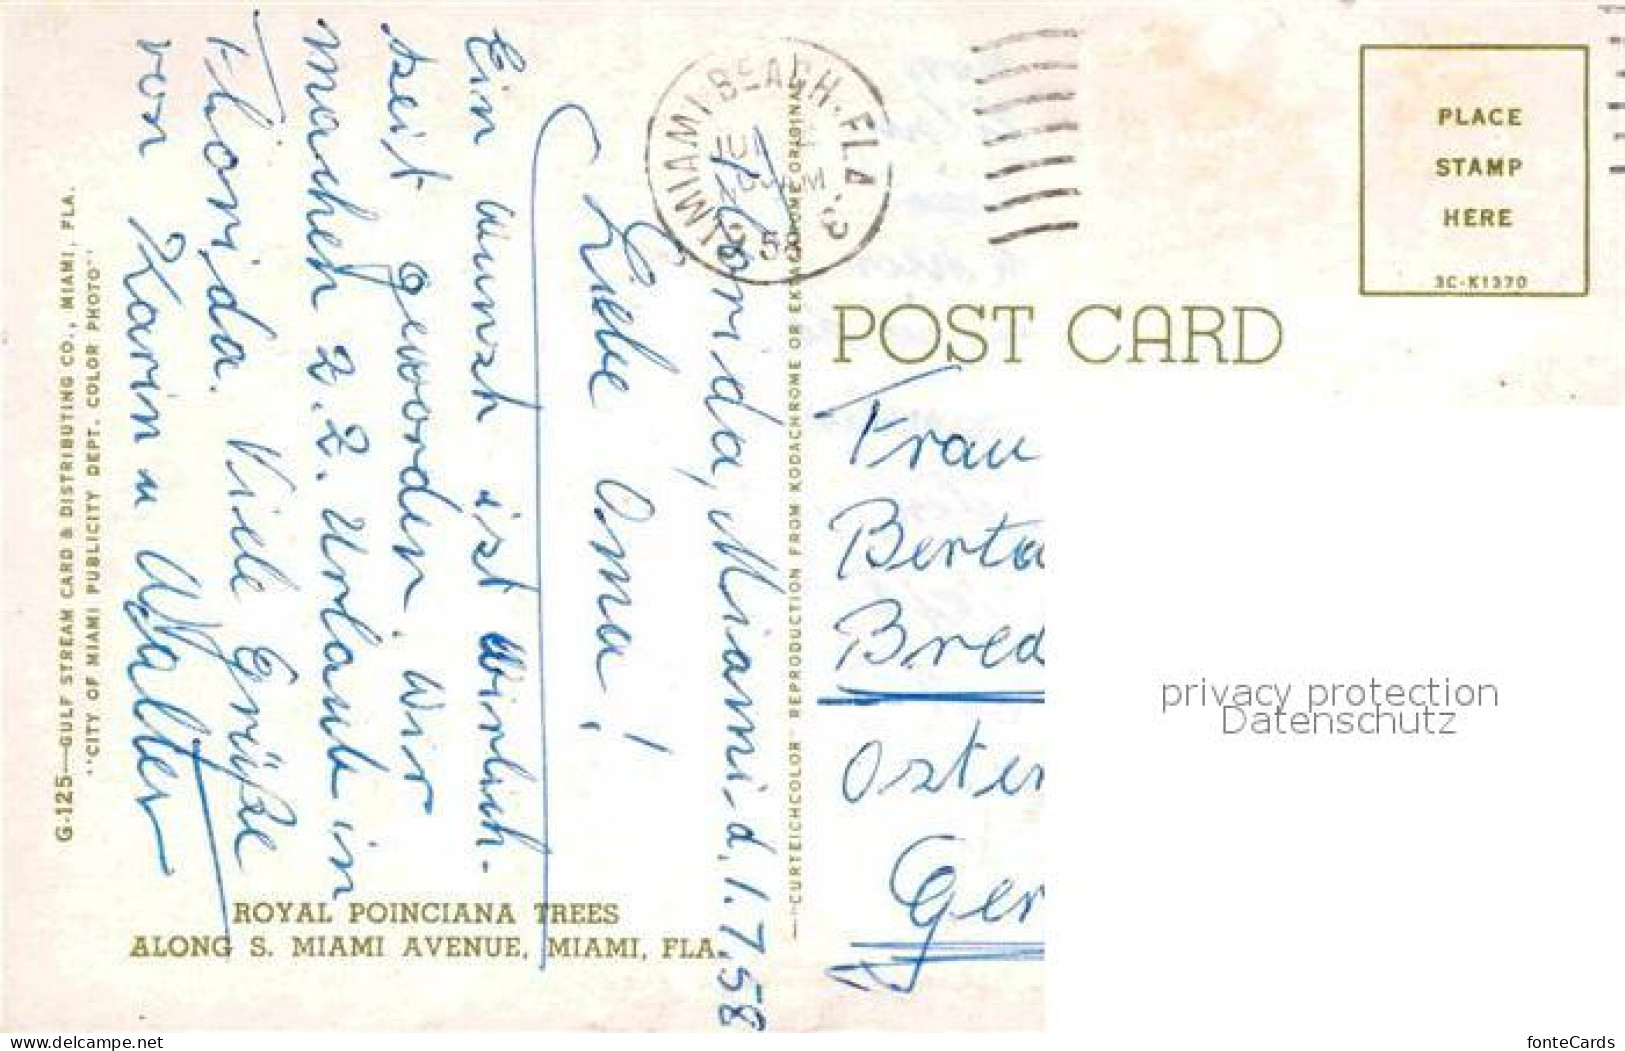 Florida, Miami d. 1.7.58
Liebe Oma!
Ein Wunsch ist wirklich-
keit geworden. Wir
machen z.Z. Urlaub in
Florida. Viele Grüße
von Karin u Walter
G-125—GULF STREAM CARD & DISTRIBUTING CO., MIAMI, FLA.
"CITY OF MIAMI PUBLICITY DEPT. COLOR PHOTO"
ROYAL POINCIANA TREES
ALONG S. MIAMI AVENUE, MIAMI, FLA.
—"CURTEICHCOLOR" REPRODUCTION FROM KODACHROME OR EKTACHROME ORIGINAL
MIAMI BEACH, FLA.
POST CARD
PLACE
STAMP
HERE
3C-K1370
Frau
Berta
Bred
Oster
Ger
privacy protection
Datenschutz
www.ansichtskartenversand.com
fonteCards